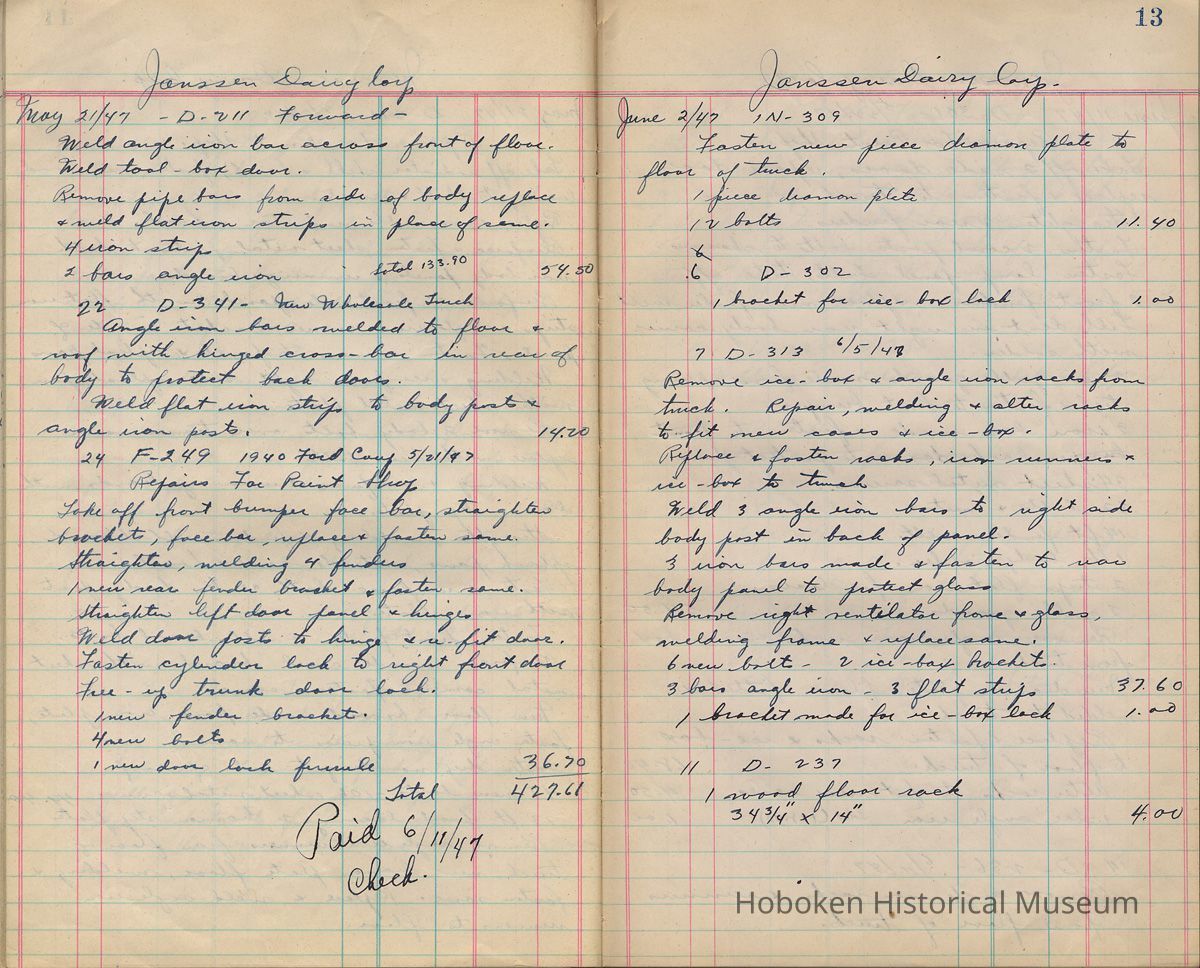 11
Janssen Dairy Corp
May 21/47 - D-211 Forward -
Weld angle iron bar across front of floor.
Weld tool-box door.
Remove pipe bars from side of body replace
& weld flat iron strips in place of same.
4 iron strips
2 bars angle iron Total 133.90 54.50
22 D-341- New Wholesale Truck
Angle iron bars welded to floor &
roof with hinged cross-bar in rear of
body to protect back doors.
Weld flat iron strips to body posts &
angle iron posts. 14.20
24 F-249 1940 Ford Coup 5/21/47
Repairs For Paint Shop
Take off front bumper face bar, straighten
brackets, face bar, replace & fasten same.
Straighten, welding 4 fenders
1 new rear fender bracket & fasten same.
Straighten left door panel & hinges
Weld door posts to hinge & re-fit door.
Fasten cylinder lock to right front door
Free-up trunk door lock.
1 new fender bracket.
4 new bolts
1 new door lock ferrule 36.70
Total 427.61
Paid 6/11/47
Check.
13
Janssen Dairy Corp.
June 2/47 IN-309
Fasten new piece diamon plate to
floor of truck.
1 piece diamon plate
12 bolts 11.40
6
.6 D-302
1 bracket for ice-box lock 1.00
7 D-313 6/5/47
Remove ice-box & angle iron racks from
truck. Repair, welding & alter racks
to fit new cases & ice-box.
Replace & fasten racks, iron runners &
ice-box to truck
Weld 3 angle iron bars to right side
body post in back of panel.
3 iron bars made & fasten to rear
body panel to protect glass
Remove right ventilator frame & glass,
welding frame & replace same.
6 new bolts - 2 ice-box brackets.
3 bars angle iron - 3 flat strips 37.60
1 bracket made for ice-box lock 1.00
11 D-237
1 wood floor rack
34 3/4" x 14" 4.00
Hoboken Historical Museum